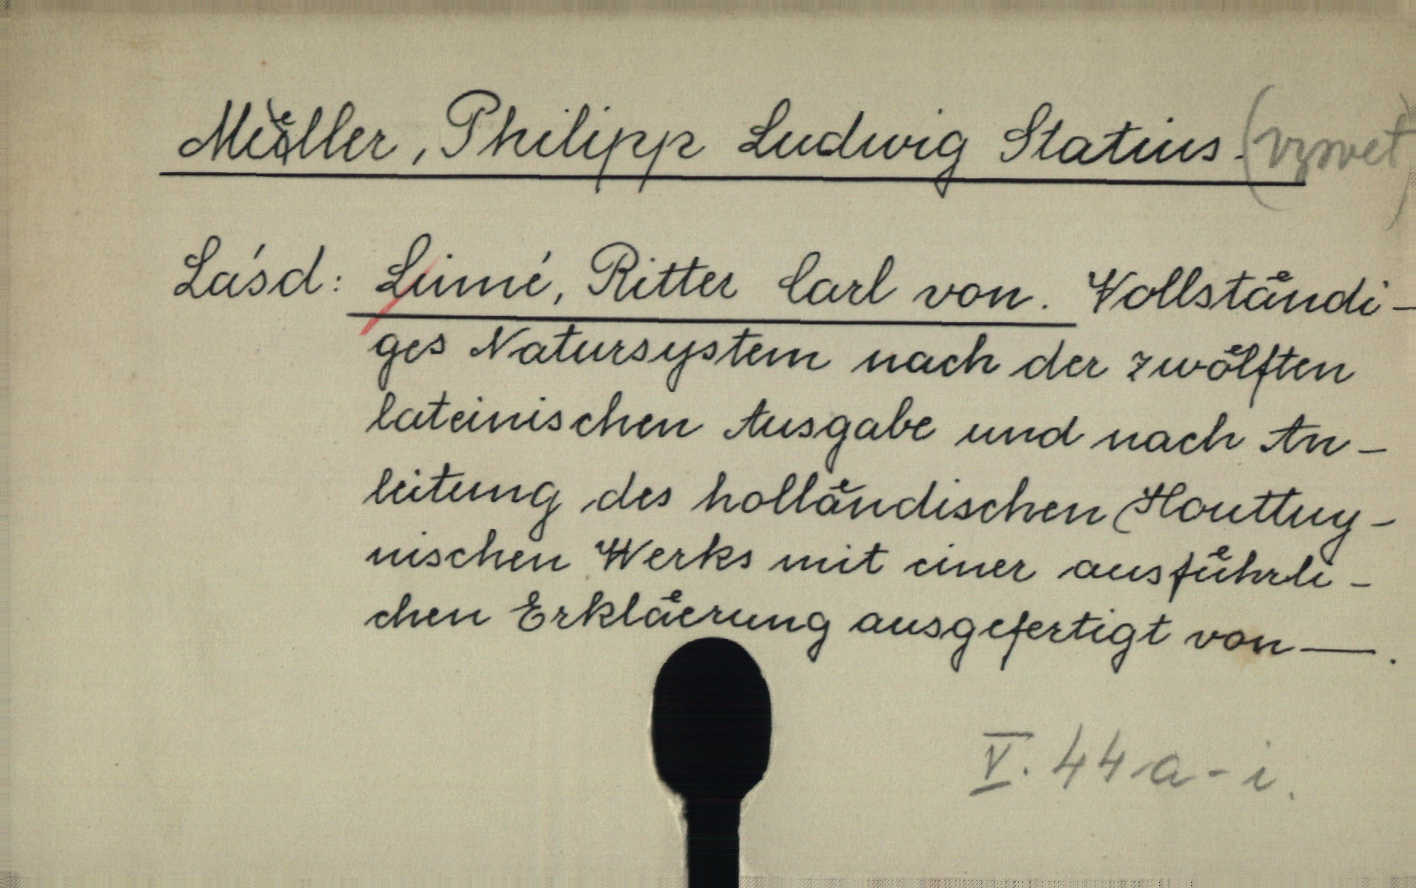 Müller, Philipp Ludwig Statius.
Lásd: Linné, Ritter Carl von. Vollståndi-
ges Natursystem nach der zwölften
lateinischen Ausgabe und nach An-
leitung des holländischen Houttuy-
nischen Werks mit einer ausführli-
chen Erkläerung ausgefertigt von —.
V. 44 a-i.